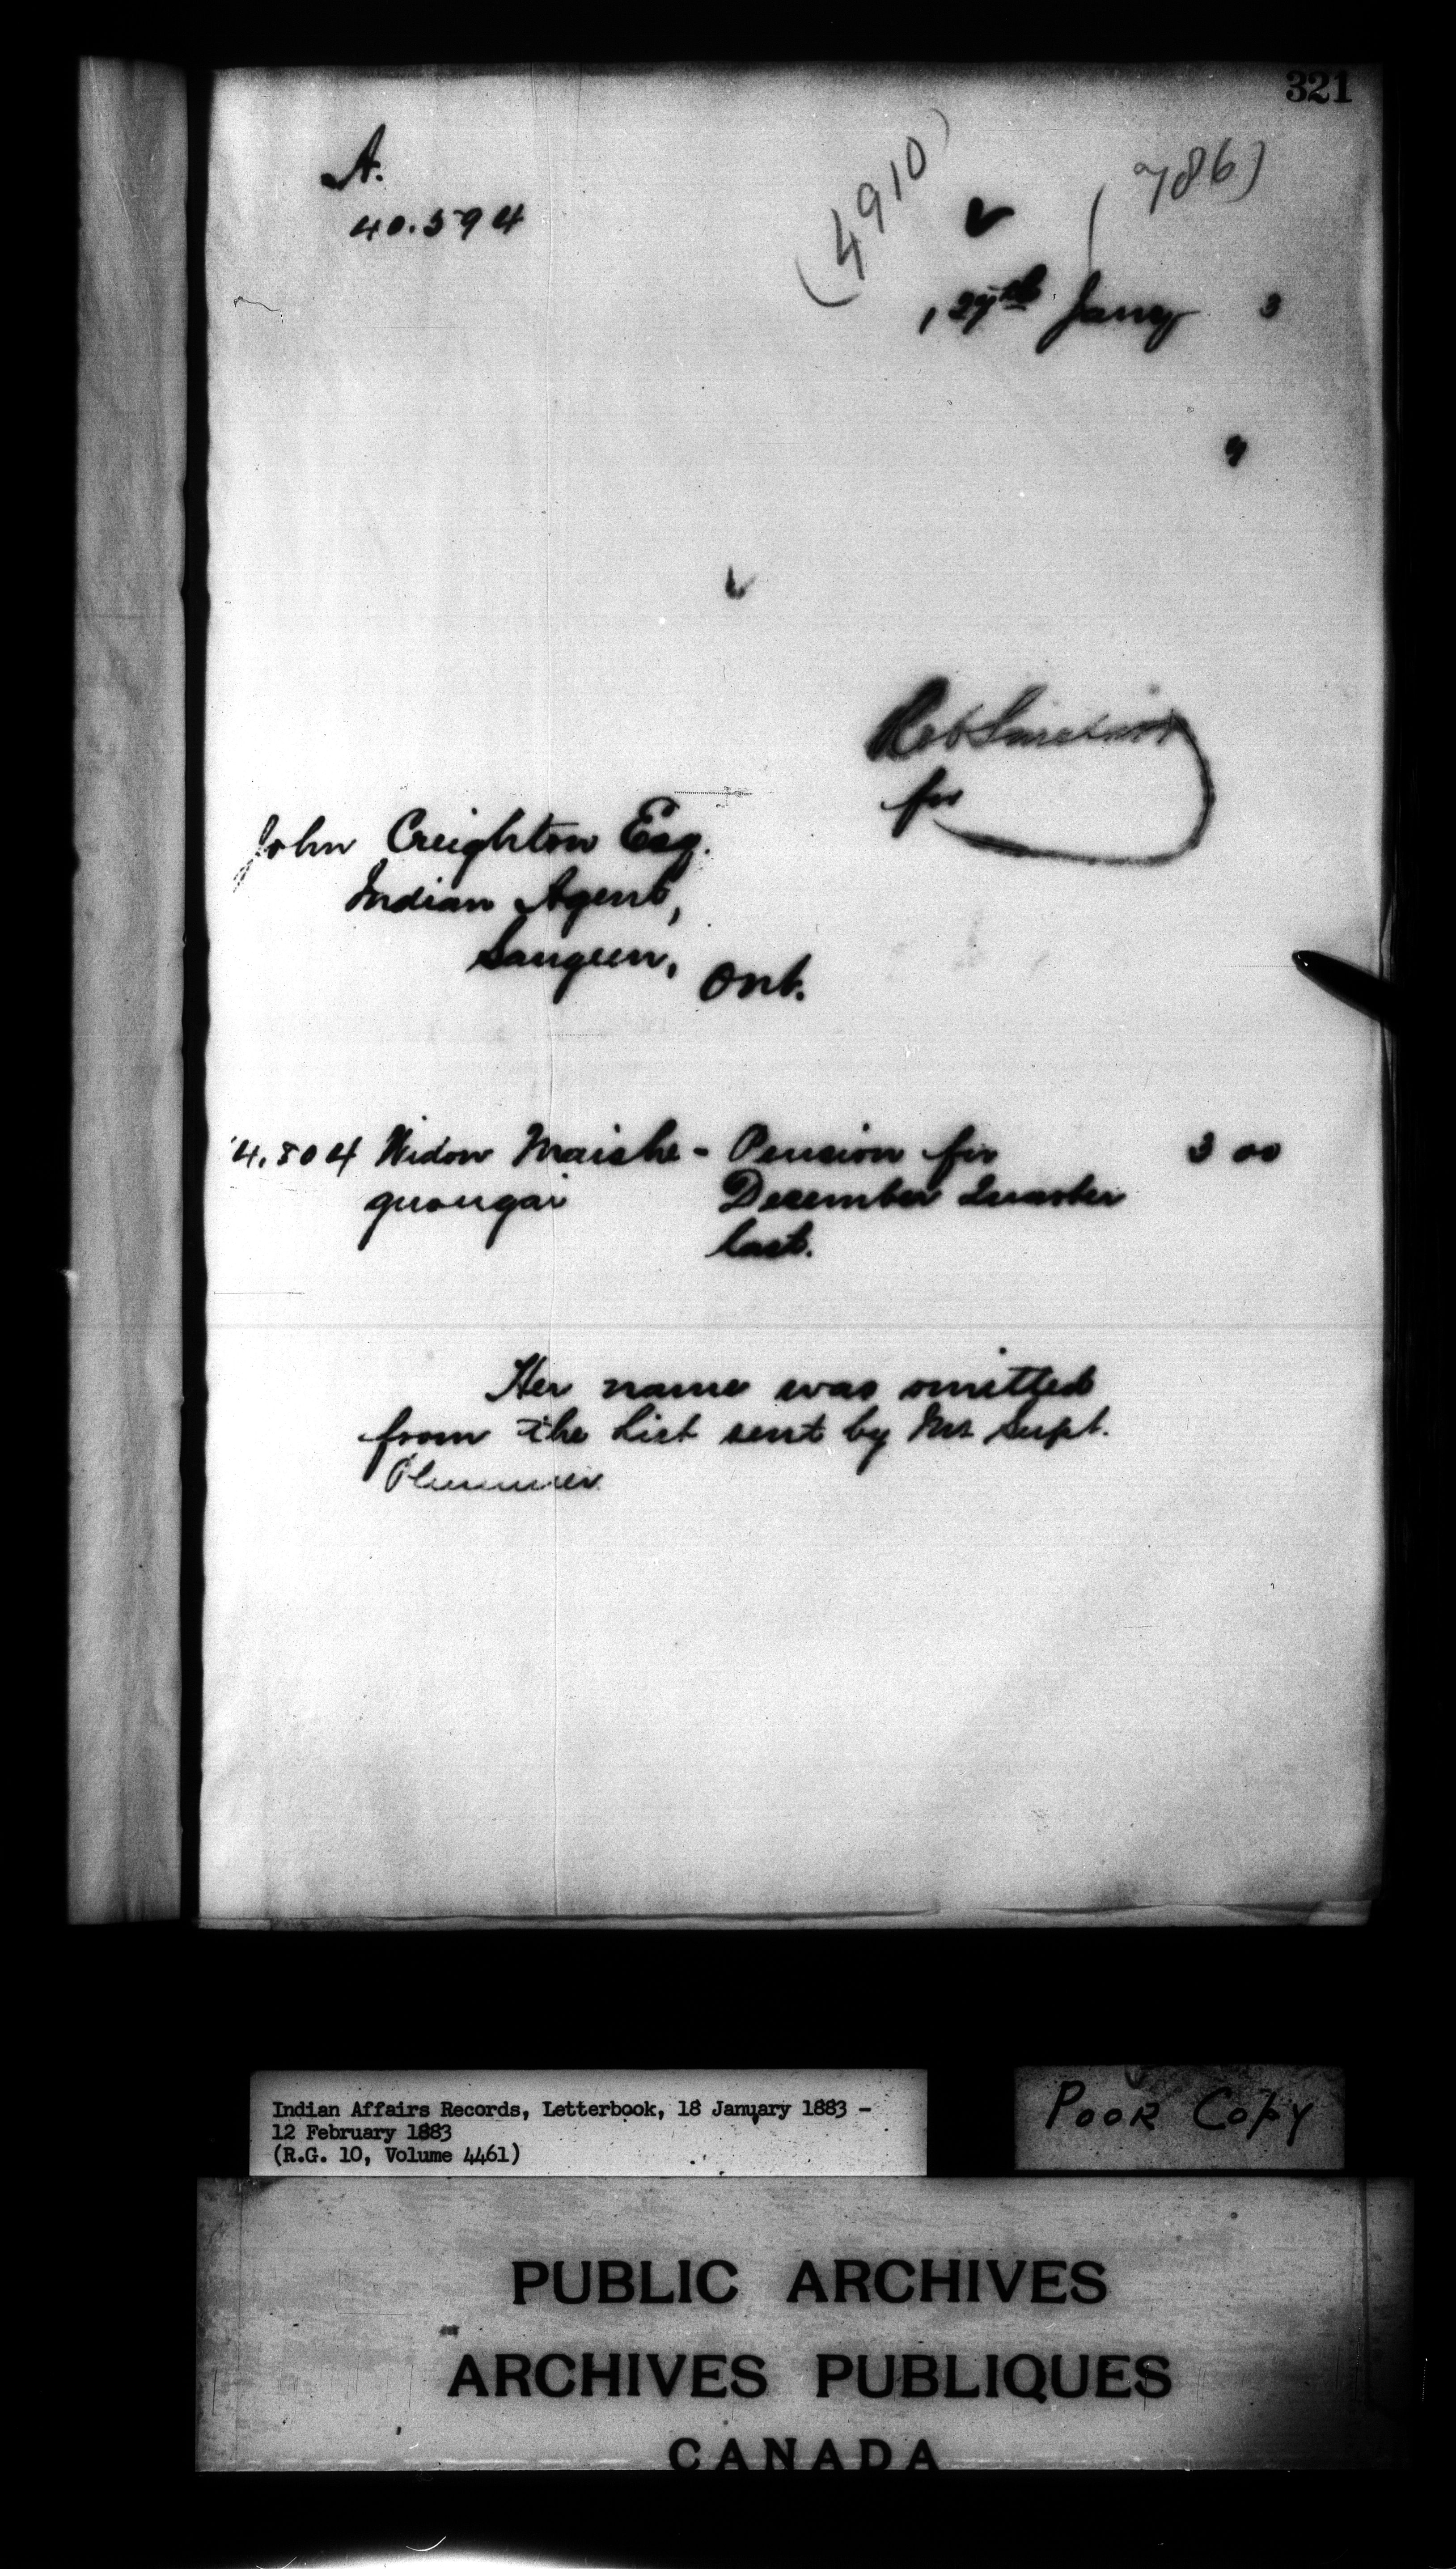 321
A.
40.594
(4910)
(786)
27th Jany 3
9
Rob Sinclair
for
John Creighton Esq.
Indian Agent,
Saugeen, Ont.
4.804 Widow Maishe- Pension for 3 00
quongai December Quarter
last.
Her name was omitted
from the List sent by Mr Supt.
Plummer
Indian Affairs Records, Letterbook, 18 January 1883 -
12 February 1883
(R.G. 10, Volume 4461)
POOR COPY
PUBLIC ARCHIVES
ARCHIVES PUBLIQUES
CANADA